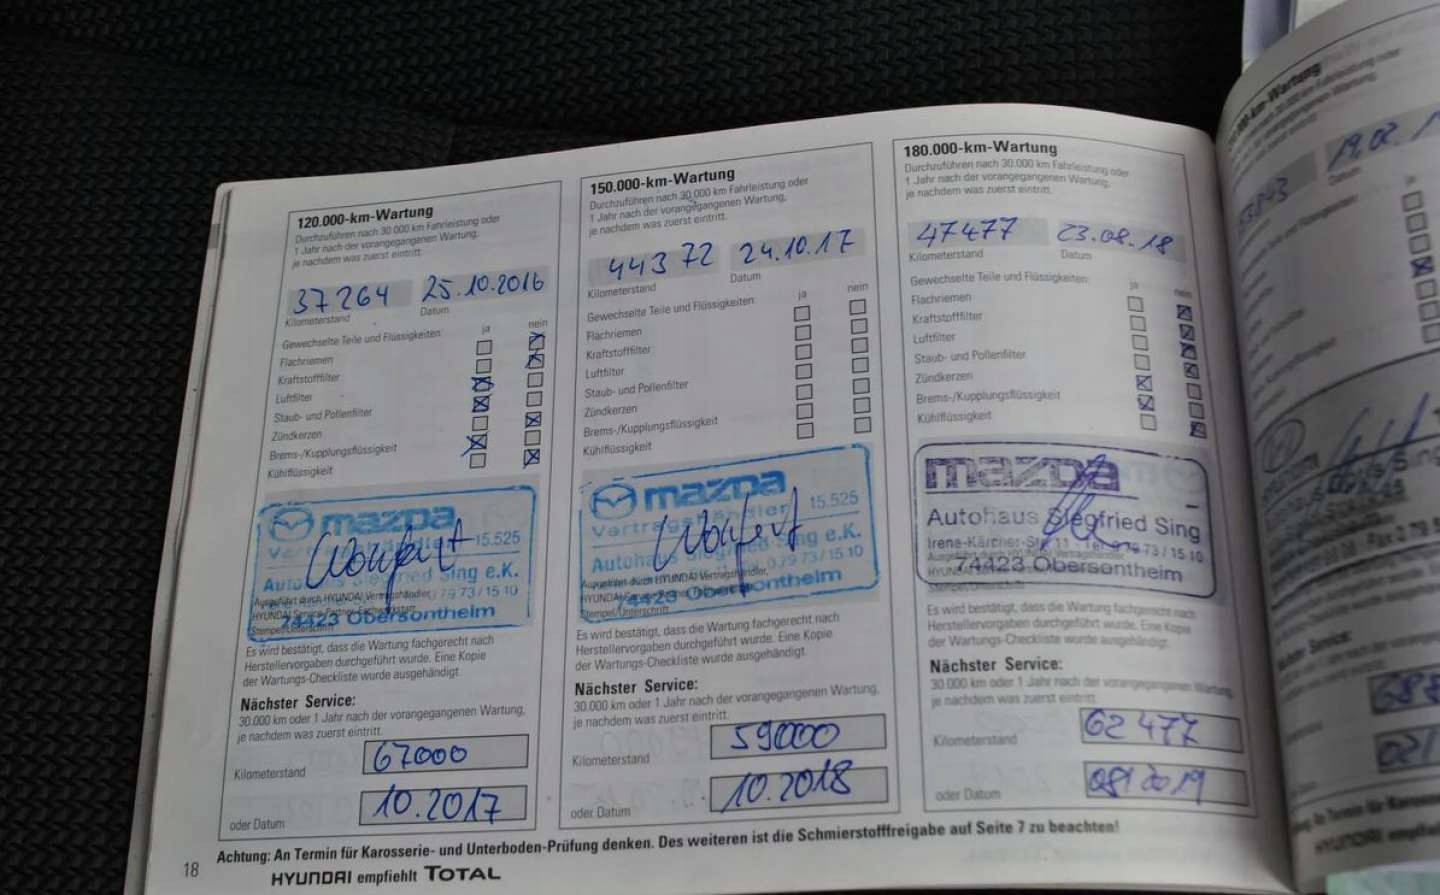 120.000-km-Wartung
Durchzuführen nach 30.000 km Fahrleistung oder
1 Jahr nach der vorangegangenen Wartung,
je nachdem was zuerst eintritt.
37264 25.10.2016
Kilometerstand Datum
Gewechselte Teile und Flüssigkeiten: ja nein
Flachriemen
Kraftstofffilter
Luftfilter
Staub- und Pollenfilter
Zündkerzen
Brems-/Kupplungsflüssigkeit
Kühlflüssigkeit
mazda
Vertragshändler 15.525
Autohaus Siegfried Sing e.K.
Ausgeführt durch HYUNDAI Vertragshändler,
HYUNDAI Service-Partner, Fachwerkstatt
Stempel/Unterschrift
74423 Obersontheim
Es wird bestätigt, dass die Wartung fachgerecht nach
Herstellervorgaben durchgeführt wurde. Eine Kopie
der Wartungs-Checkliste wurde ausgehändigt.
Nächster Service:
30.000 km oder 1 Jahr nach der vorangegangenen Wartung,
je nachdem was zuerst eintritt.
Kilometerstand 67000
oder Datum 10.2017
150.000-km-Wartung
Durchzuführen nach 30.000 km Fahrleistung oder
1 Jahr nach der vorangegangenen Wartung,
je nachdem was zuerst eintritt.
44372 24.10.17
Kilometerstand Datum
Gewechselte Teile und Flüssigkeiten: ja nein
Flachriemen
Kraftstofffilter
Luftfilter
Staub- und Pollenfilter
Zündkerzen
Brems-/Kupplungsflüssigkeit
Kühlflüssigkeit
mazda
Vertragshändler 15.525
Autohaus Siegfried Sing e.K.
Ausgeführt durch HYUNDAI Vertragshändler,
0 79 73/15 10
Stempel/Unterschrift
74423 Obersontheim
Es wird bestätigt, dass die Wartung fachgerecht nach
Herstellervorgaben durchgeführt wurde. Eine Kopie
der Wartungs-Checkliste wurde ausgehändigt.
Nächster Service:
30.000 km oder 1 Jahr nach der vorangegangenen Wartung,
je nachdem was zuerst eintritt.
Kilometerstand 59000
oder Datum 10.2018
180.000-km-Wartung
Durchzuführen nach 30.000 km Fahrleistung oder
1 Jahr nach der vorangegangenen Wartung,
je nachdem was zuerst eintritt.
47477 23.08.18
Kilometerstand Datum
Gewechselte Teile und Flüssigkeiten: ja nein
Flachriemen
Kraftstofffilter
Luftfilter
Staub- und Pollenfilter
Zündkerzen
Brems-/Kupplungsflüssigkeit
Kühlflüssigkeit
mazda
Autohaus Siegfried Sing
Irene-Kärcher-Str. 11
74423 Obersontheim
Stempel/Unterschrift
Es wird bestätigt, dass die Wartung fachgerecht nach
Herstellervorgaben durchgeführt wurde. Eine Kopie
der Wartungs-Checkliste wurde ausgehändigt.
Nächster Service:
30.000 km oder 1 Jahr nach der vorangegangenen Wartung,
je nachdem was zuerst eintritt.
Kilometerstand 62477
oder Datum 08/2019
Achtung: An Termin für Karosserie- und Unterboden-Prüfung denken. Des weiteren ist die Schmierstofffreigabe auf Seite 7 zu beachten!
18
HYUNDAI empfiehlt TOTAL
km-Wartung
19.02
Datum
ja
Sing
Service:
An Termin für Karosserie-
HYUNDAI empfiehlt